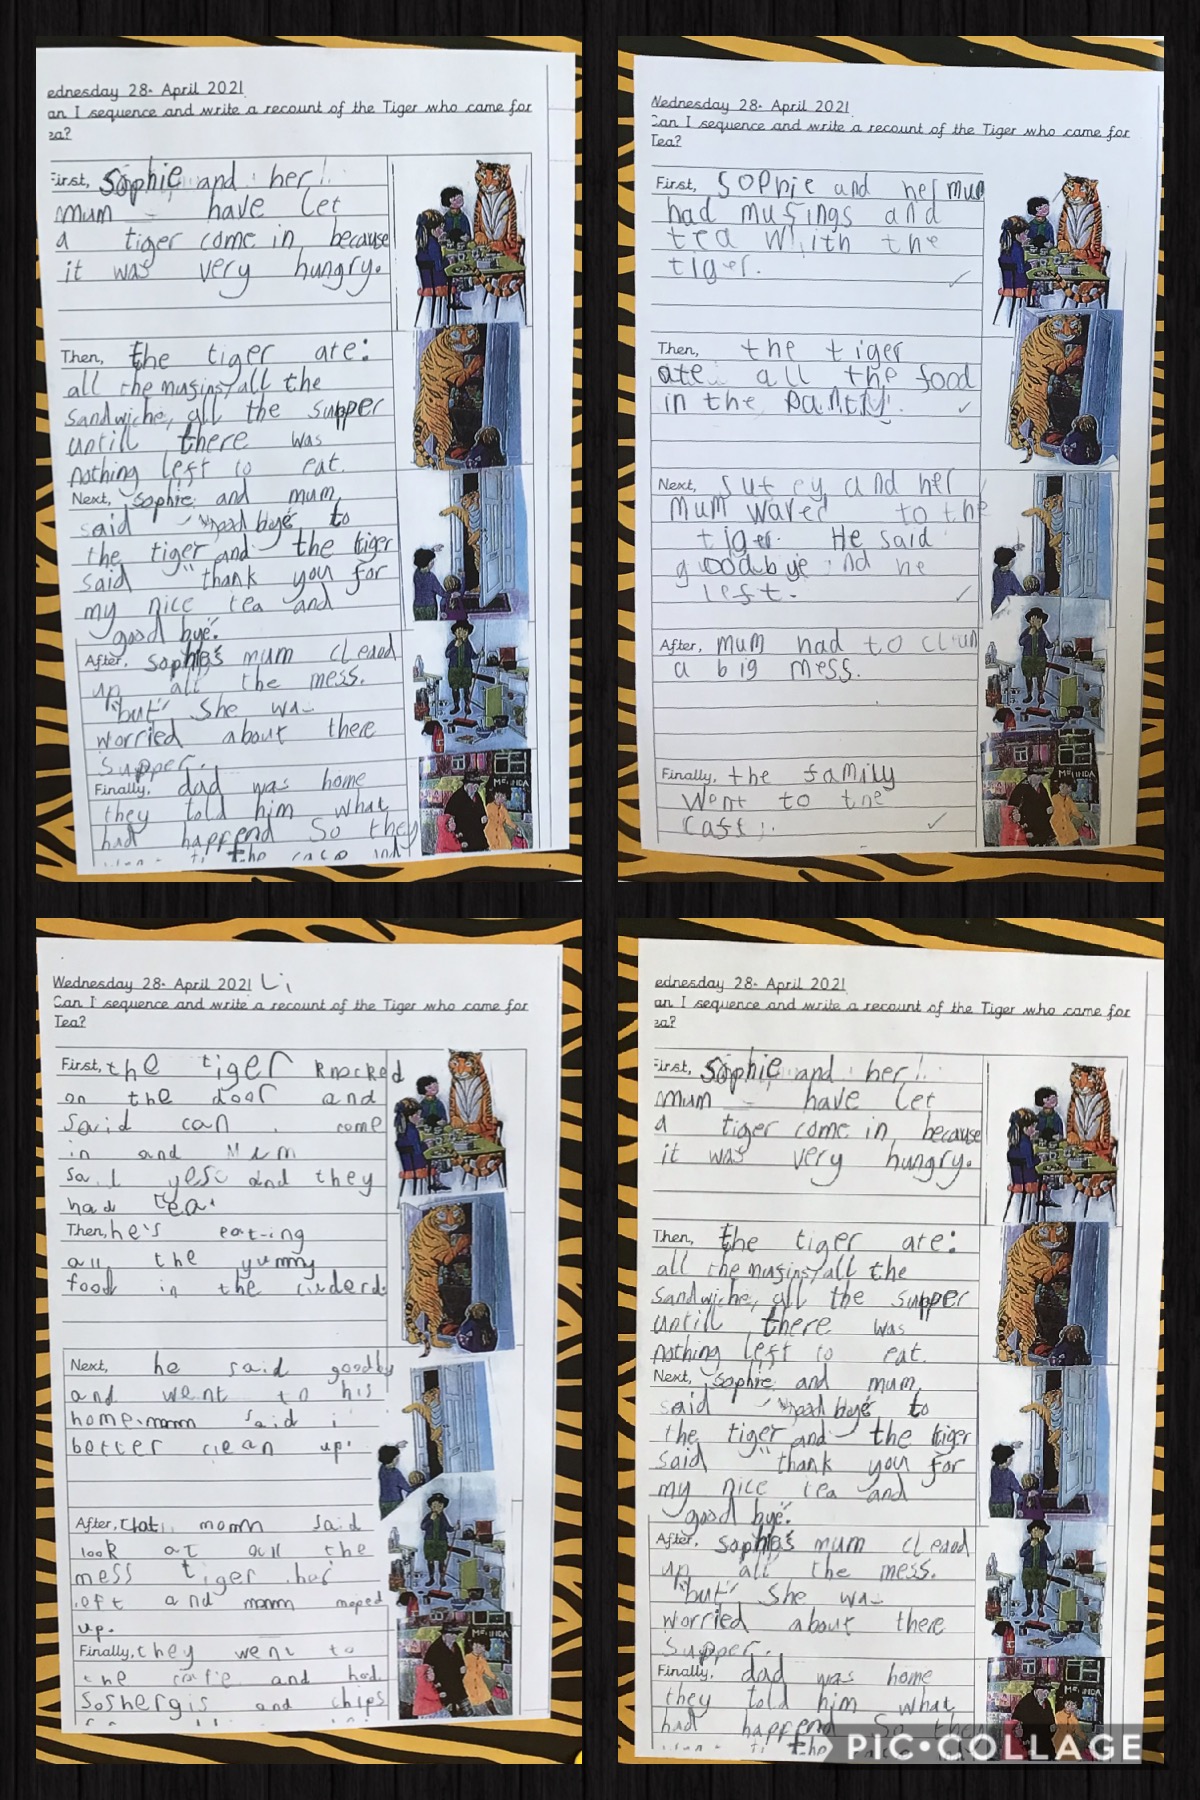 ednesday 28. April 2021
an I sequence and write a recount of the Tiger who came for
ea?
First, Sophie and her
mum have let
a tiger come in, because
it was very hungry.
Then, the tiger ate:
all the musins, all the
sandwiche, all the supper
untill there was
nothing left to eat.
Next, Sophie and mum
said bye to
the tiger and the tiger
said "thank you for
my nice tea and
good bye."
After, Sophie's mum cleaed
up all the mess.
"but" She was
worried about there
supper.
Finally, dad was home
they told him what
had happend So they
the
Wednesday 28. April 2021
Can I sequence and write a recount of the Tiger who came for
Tea?
First, Sophie and her mum
had mufings and
tea whith the
tiger.
Then, the tiger
ate all the food
in the pantry.
Next, and her
mum waved to the
tiger. He said
goodbye nd he
left.
After, mum had to
a big mess.
Finally, the family
went to the
caft
Wednesday 28. April 2021 Li
Can I sequence and write a recount of the Tiger who came for
Tea?
First, the tiger knocked
on the door and
said can come
in and Mum
said yes and they
had tea.
Then, he's eating
all the yummy
food in the
Next, he said goodby
and went to his
home. mom said i
better clean up.
After, that mom said
look at all the
mess tiger
left and mom moped
up.
Finally, they went to
the and had
Soshergis and chips
ednesday 28. April 2021
an I sequence and write a recount of the Tiger who came for
ea?
First, Sophie and her
mum have let
a tiger come in, because
it was very hungry.
Then, the tiger ate:
all the musins, all the
sandwiche, all the supper
untill there was
nothing left to eat.
Next, Sophie and mum
said bye to
the tiger and the tiger
said "thank you for
my nice tea and
good bye."
After, Sophie's mum cleaed
up all the mess.
"but" She was
worried about there
supper.
Finally, dad was home
they told him what
had happend So they
the
PIC•COLLAGE